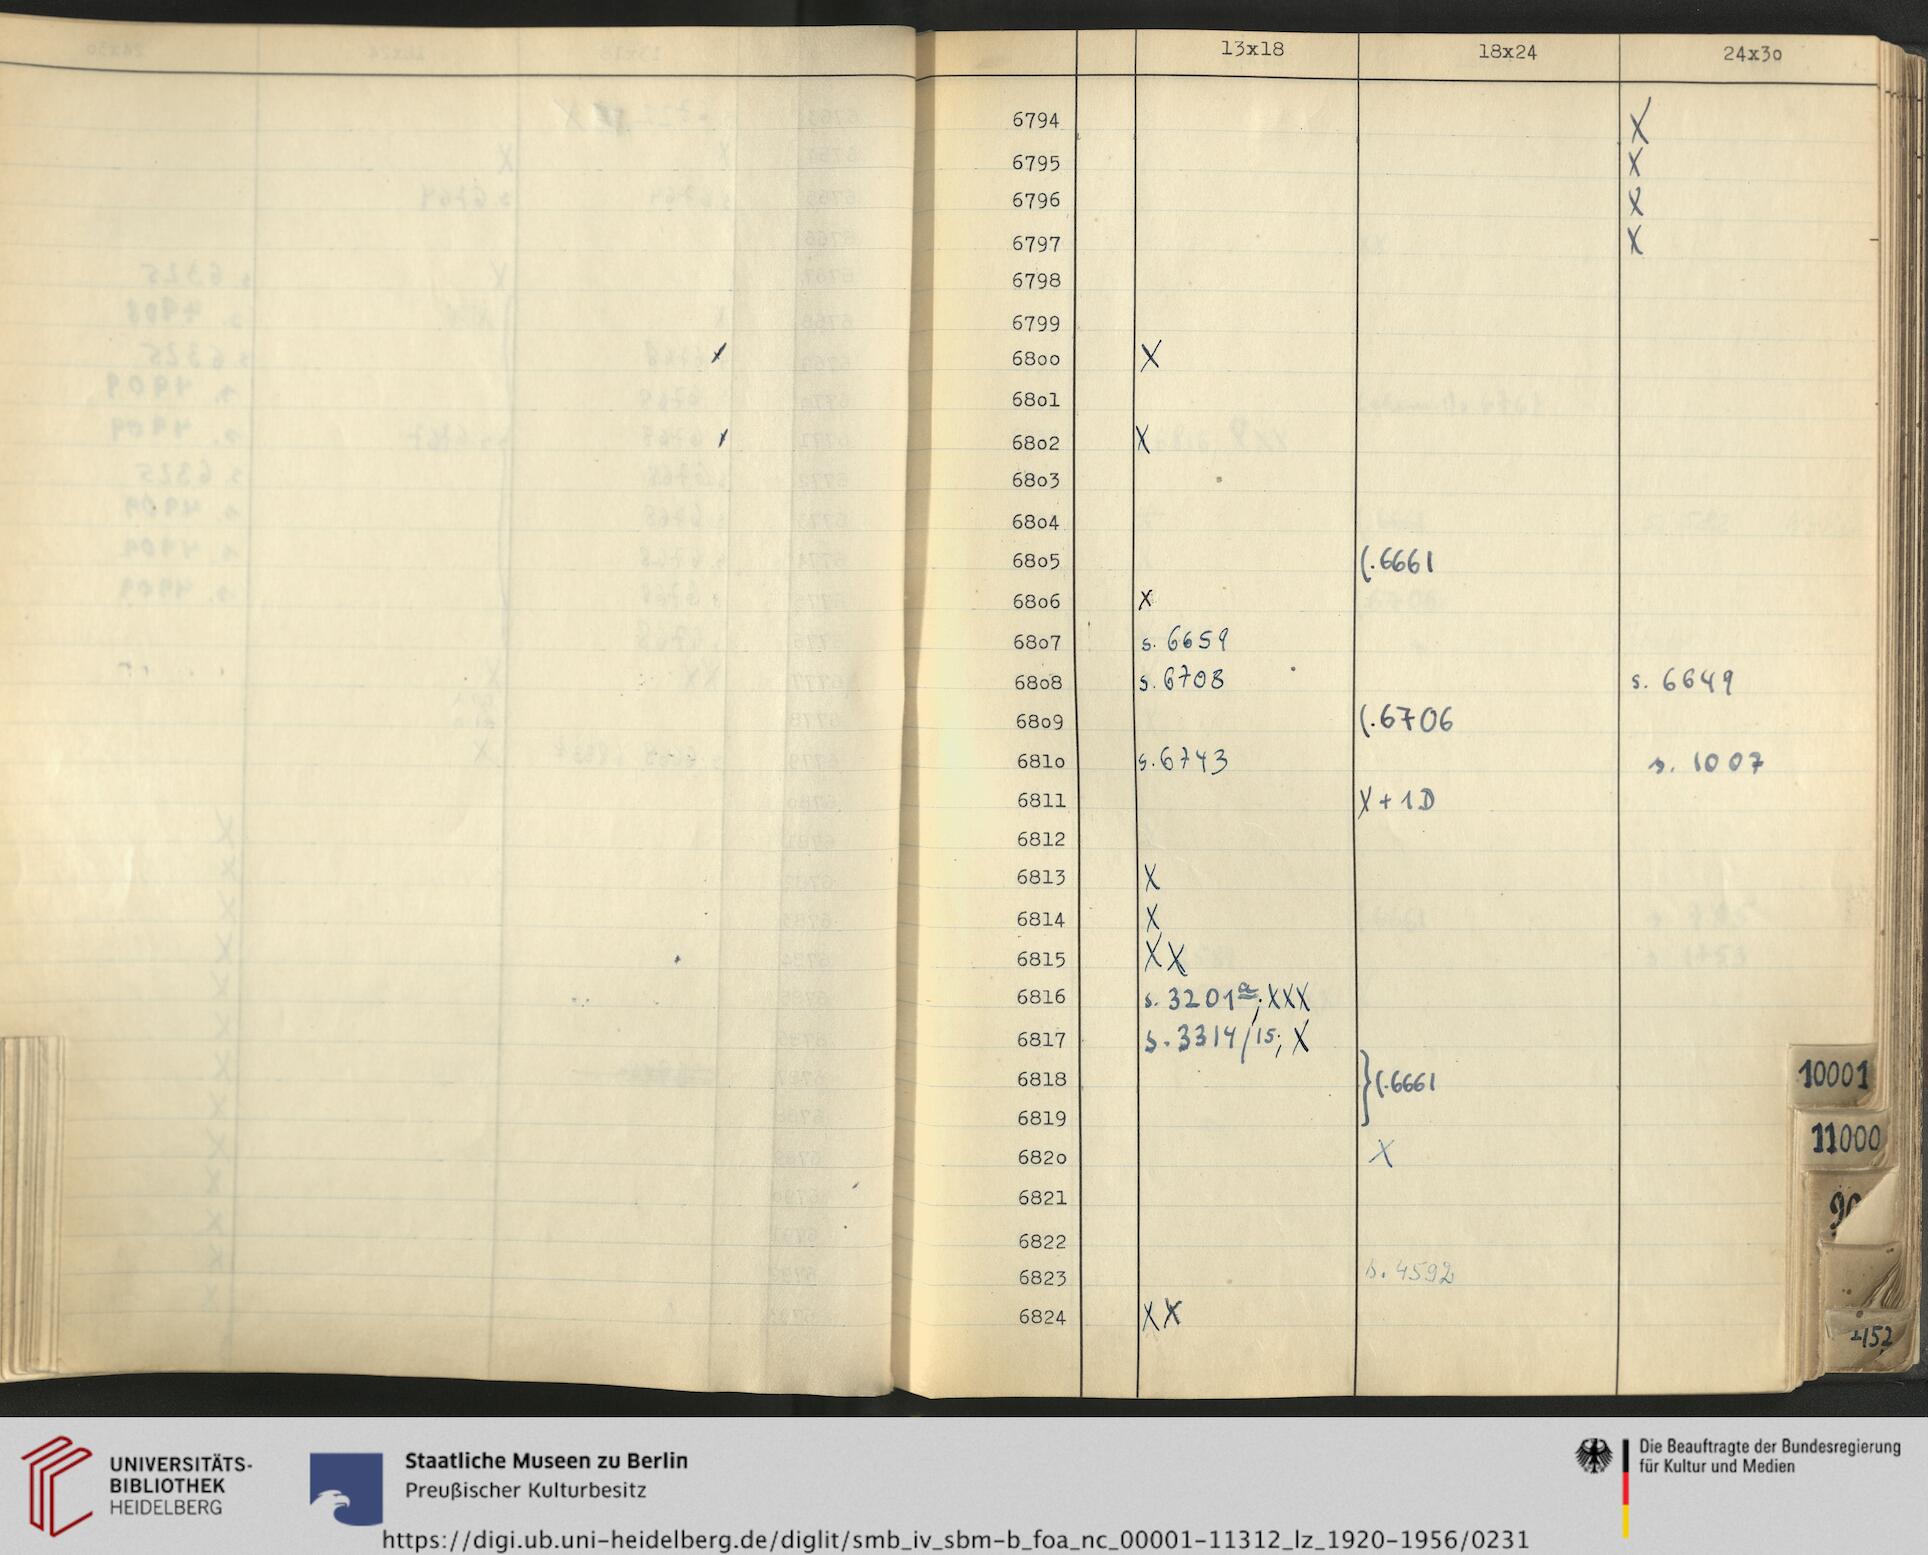 13x18 18x24 24x30
6794 X
6795 X
6796 X
6797 X
6798
6799
6800 X
6801
6802 X
6803
6804
6805 (.6661
6806 X
6807 s. 6659
6808 s. 6708 s. 6649
6809 (.6706
6810 s. 6743 s. 1007
6811 X + 1D
6812
6813 X
6814 X
6815 XX
6816 s. 3201a; XXX
6817 s. 3314/15; X
6818 (.6661
6819
6820 X
6821
6822
6823 s. 4592
6824 XX
10001
11000
UNIVERSITÄTS-
BIBLIOTHEK
HEIDELBERG
Staatliche Museen zu Berlin
Preußischer Kulturbesitz
Die Beauftragte der Bundesregierung
für Kultur und Medien
https://digi.ub.uni-heidelberg.de/diglit/smb_iv_sbm-b_foa_nc_00001-11312_lz_1920-1956/0231